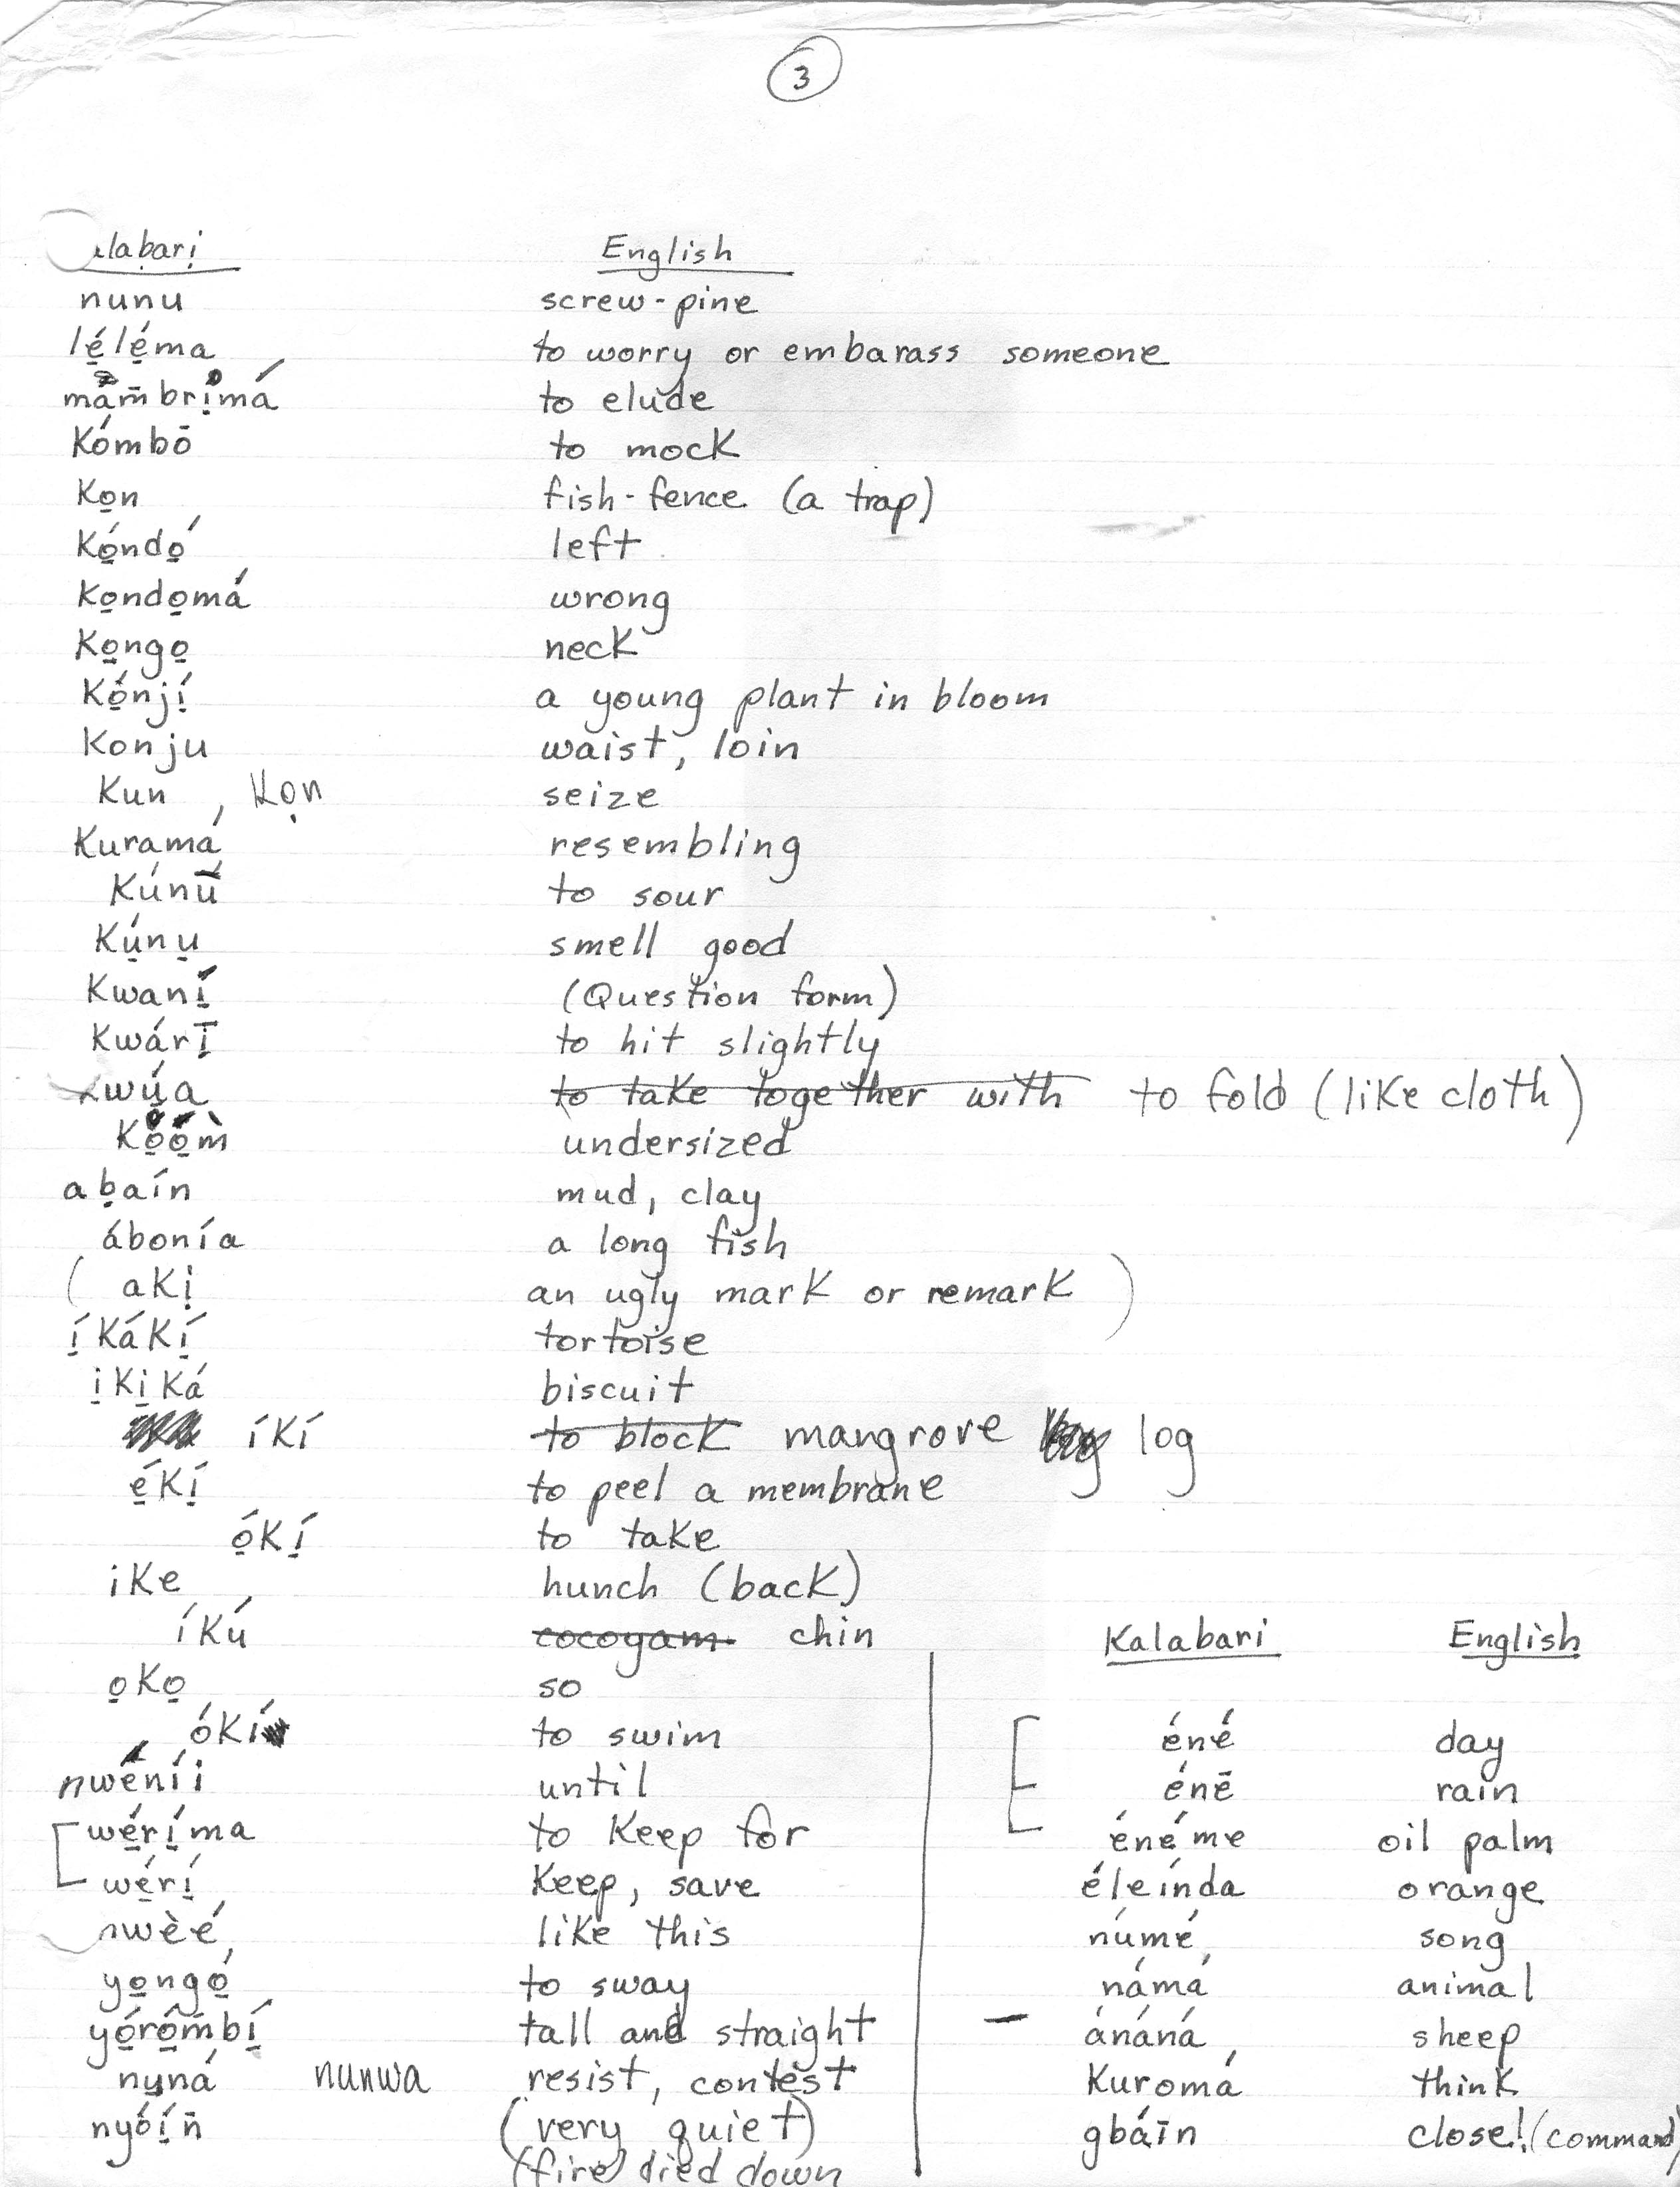 3
alaḅarị English
nunu screw-pine
lẹ́lẹ́ma to worry or embarass someone
mám̄brị́má to elude
Kómbō to mock
Kọn fish-fence (a trap)
Kọ́ndọ́ left
Kọndọmá wrong
Kọngọ neck
Kọ́njị́ a young plant in bloom
Konju waist, loin
Kun, Kọn seize
Kuramá resembling
Kúnū to sour
Kụ́nụ smell good
Kwanị́ (Question form)
Kwárị̄ to hit slightly
kwụ́a to take together with to fold (like cloth)
Kọ́ọ́m̀ undersized
aḅaín mud, clay
ábonía a long fish
( aKị an ugly mark or remark )
ị́Kákị́ tortoise
ịKịKá biscuit
íKí to block mangrove log
ẹ́Kị́ to peel a membrane
ọ́Kị́ to take
iKe hunch (back)
íKú cocoyam chin
ọKọ so
óKí to swim
nwéníi until
wẹ́rị́ma to Keep for
wẹ́rị́ Keep, save
nwèé like this
yọngọ́ to sway
yọ́rọ́m̄bị́ tall and straight
nụná nunwa resist, contest
nyọ́ị́n̄ (very quiet)
(fire) died down
Kalabari English
éné day
énē rain
énéme oil palm
éleínda orange
númé song
námá animal
– ánáná sheep
Kuromá think
gbáīn close! (command)